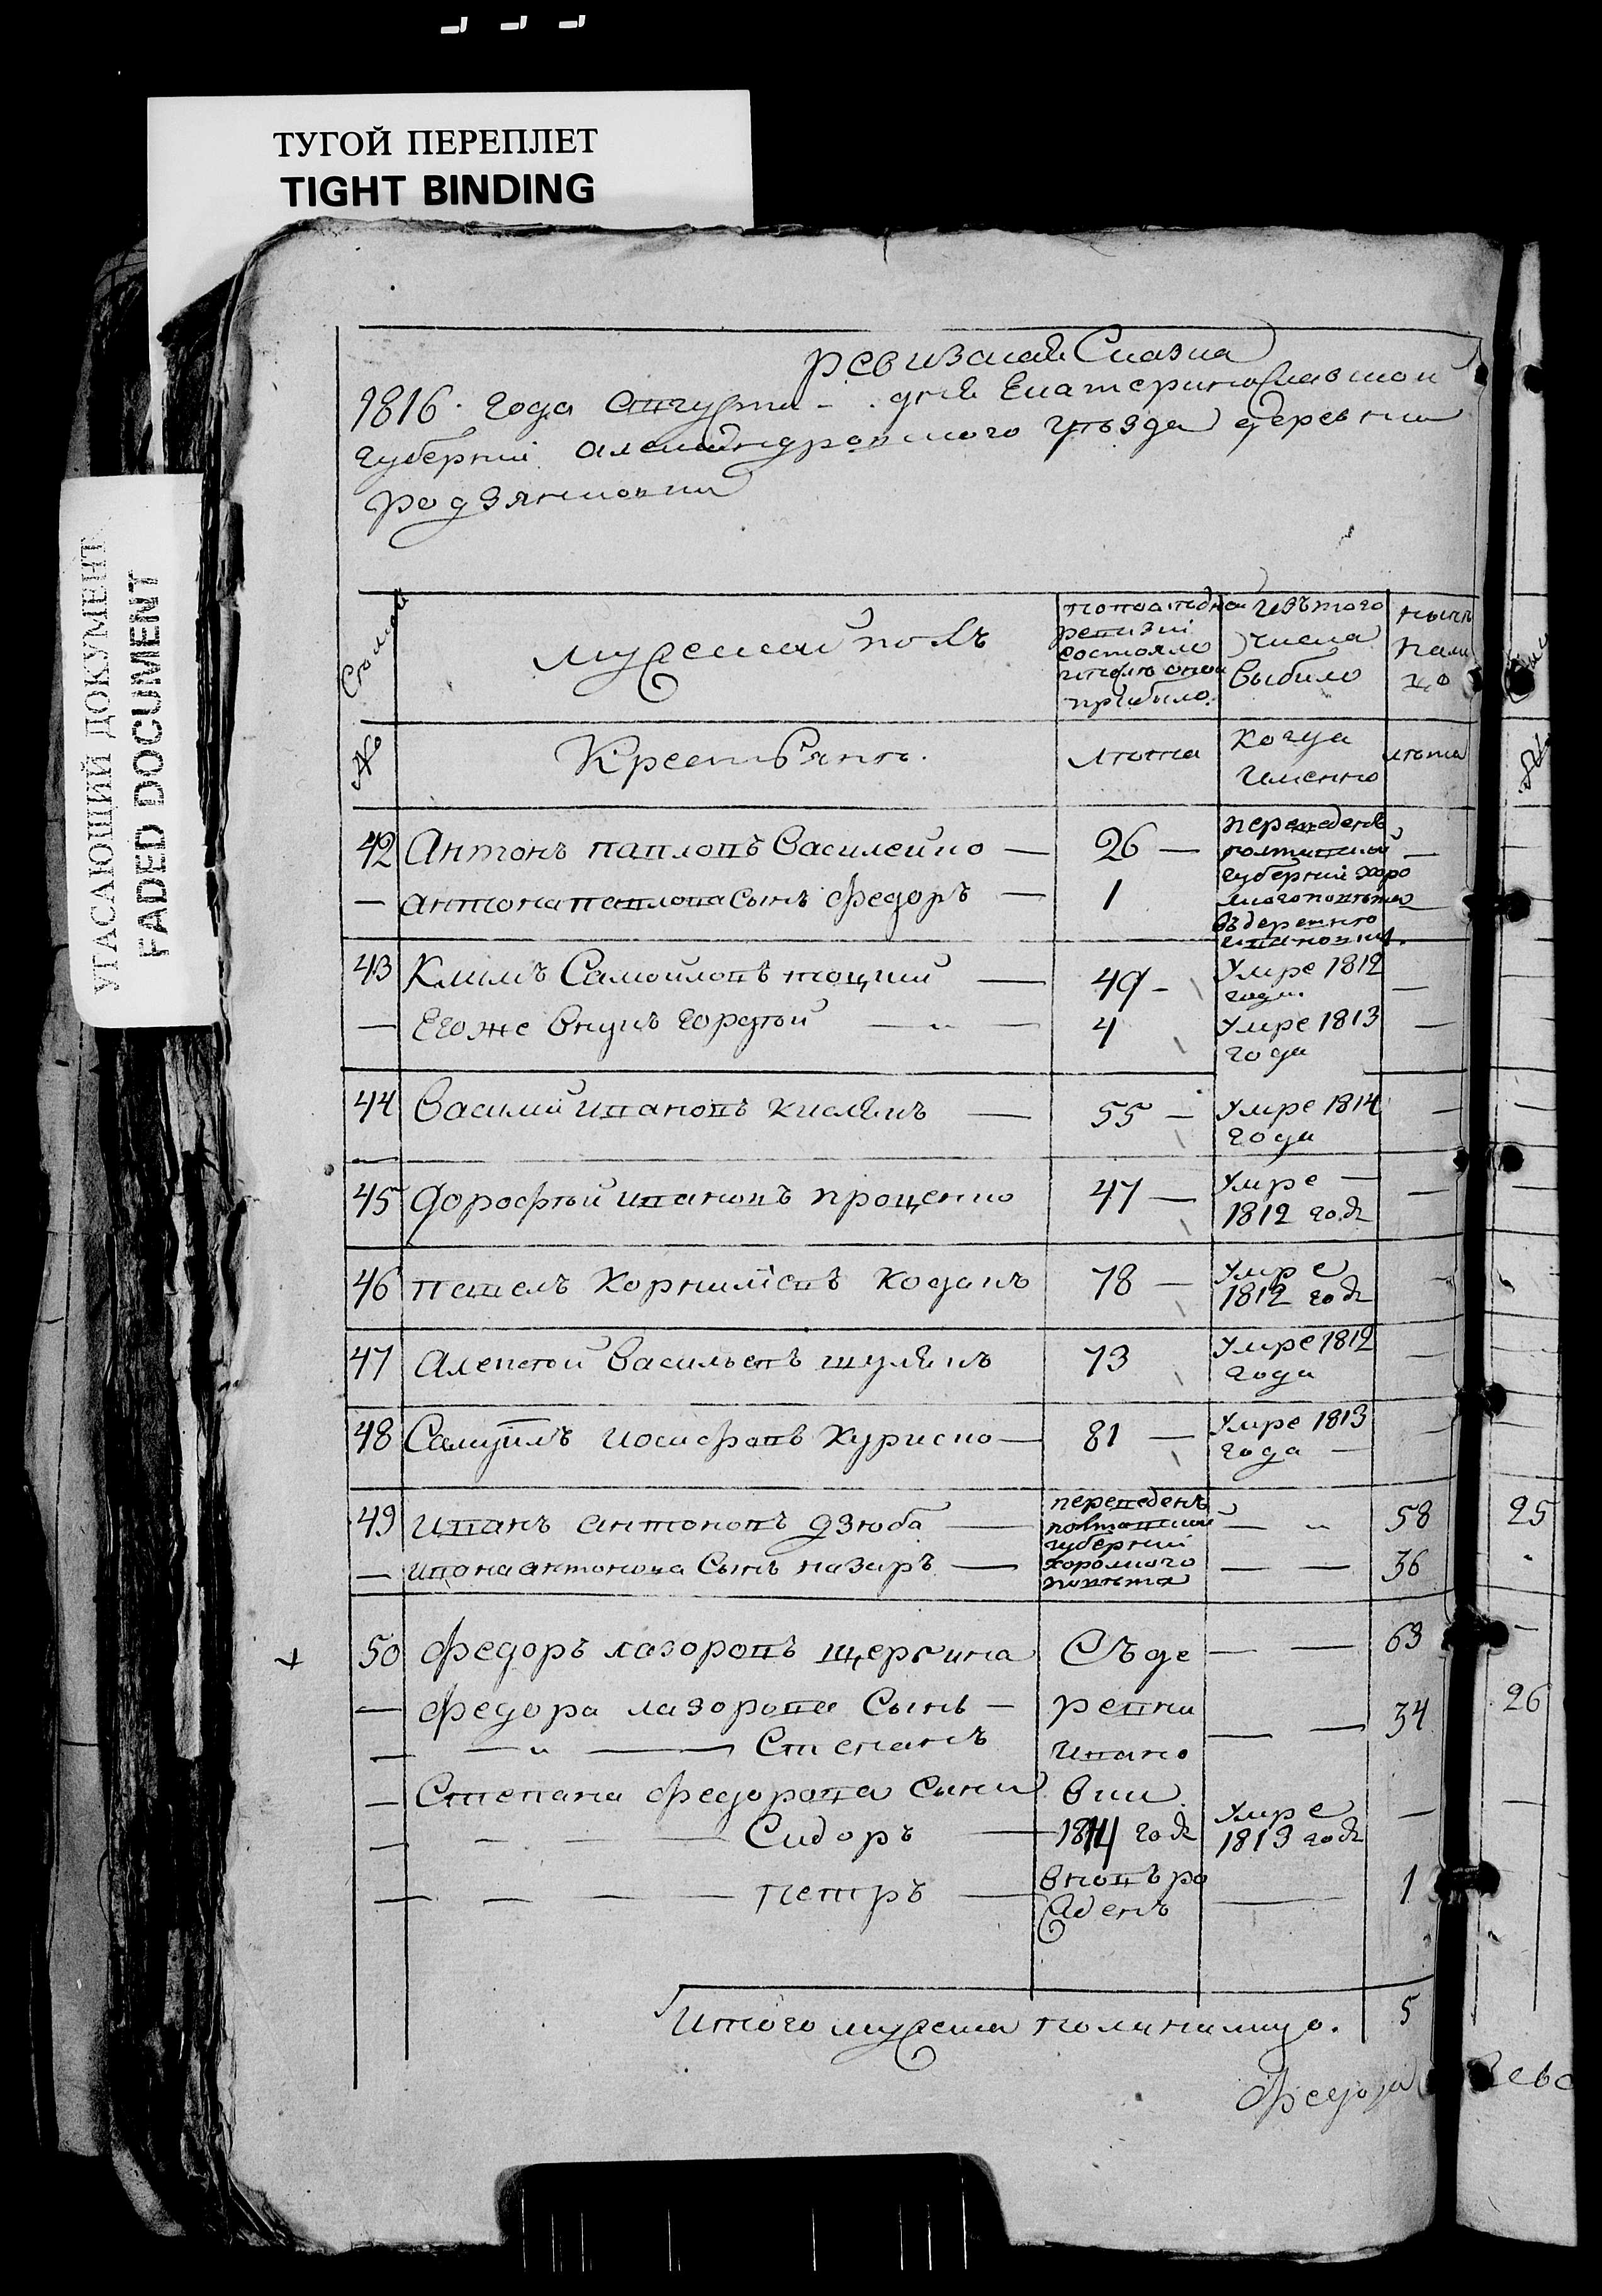 ТУГОЙ ПЕРЕПЛЕТ
TIGHT BINDING
УГАСАЮЩИЙ ДОКУМЕНТ
FADED DOCUMENT
ревизская Сказка
1816 года августа - дня Екатеринославской
губернии александровского уезда деревни
родзянковки
Семьи
мужеский полъ
попоследней ревизии состояло ипосле оной прибыло.
Изъ того числа выбыло
ныне нали цо
№
Крестьянъ.
лета
Когда именно
лета
42 Антонъ павловъ Василенко — 26 — переведенъ полтавской губернии хоро лского поветаъ въ деревню ивановку.
— антона павлова сынъ федоръ — 1 —
43 Климъ Самойловъ тоцкий — 49 - Умре 1812 года —
— Егоже внукъ гордей — „ — 4 Умре 1813 года —
44 Василий ивановъ кислякъ — 55 — Умре 1814 года —
45 дорофей ивановъ проценко 47 — Умре — 1812 года —
46 павелъ корнилиевъ коданъ 78 — Умре 1812 года
47 алексей васильевъ шулякъ 73 Умре 1812 года —
48 Самуилъ иосифовъ куриско — 81 — Умре 1813 года — —
49 иванъ антоновъ дзюба — переведенъ полтавской губернии хоролского повета — „ 58
— ивана антонова сынъ назаръ — — — 36
+ 50 федоръ лазоровъ щербина Съде — — 63
— федора лазорова Сынъ — ревни
— — „ — Степанъ ивано — — 34
— Степана федорова сыни вки
— — — Сидоръ — 1814 года Умре 1813 года —
— — — петръ — вновъ ро жденъ — 1
Итого мужеска пола налицо. 5
федора
25
26